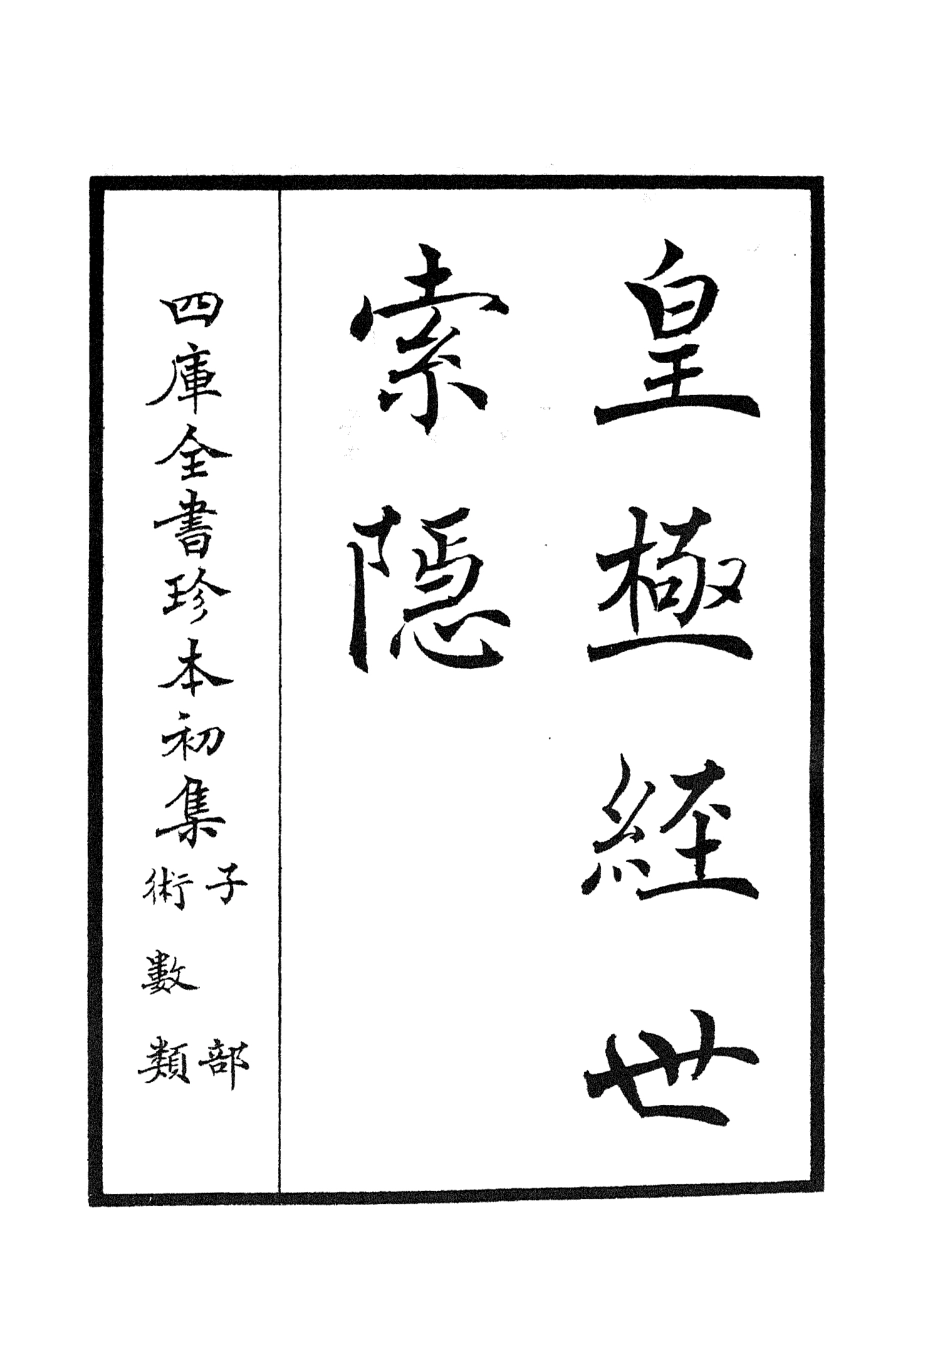 皇極経世
索隠
四庫全書珍本初集
子部
術數類